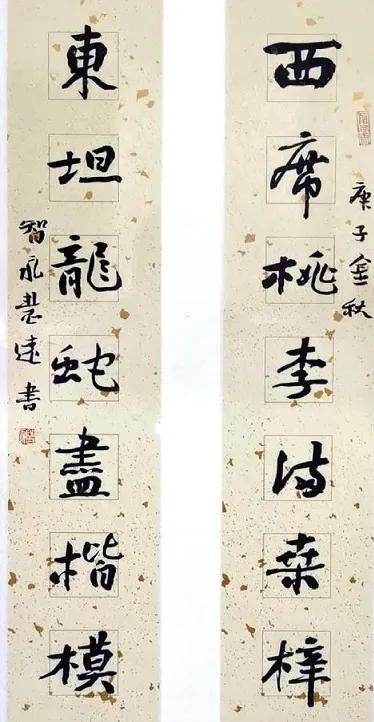 庚子金秋
西席桃李满桑梓
東坦龍蛇盡楷模
智永慧書